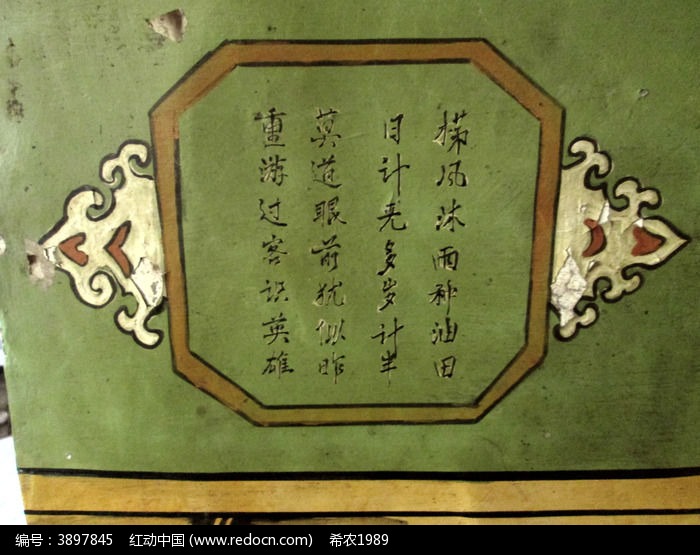 栉风沐雨种油田
日计光多岁计半
莫道眼前犹似昨
重游过客识英雄
编号：3897845 红动中国 (www.redocn.com) 希农1989